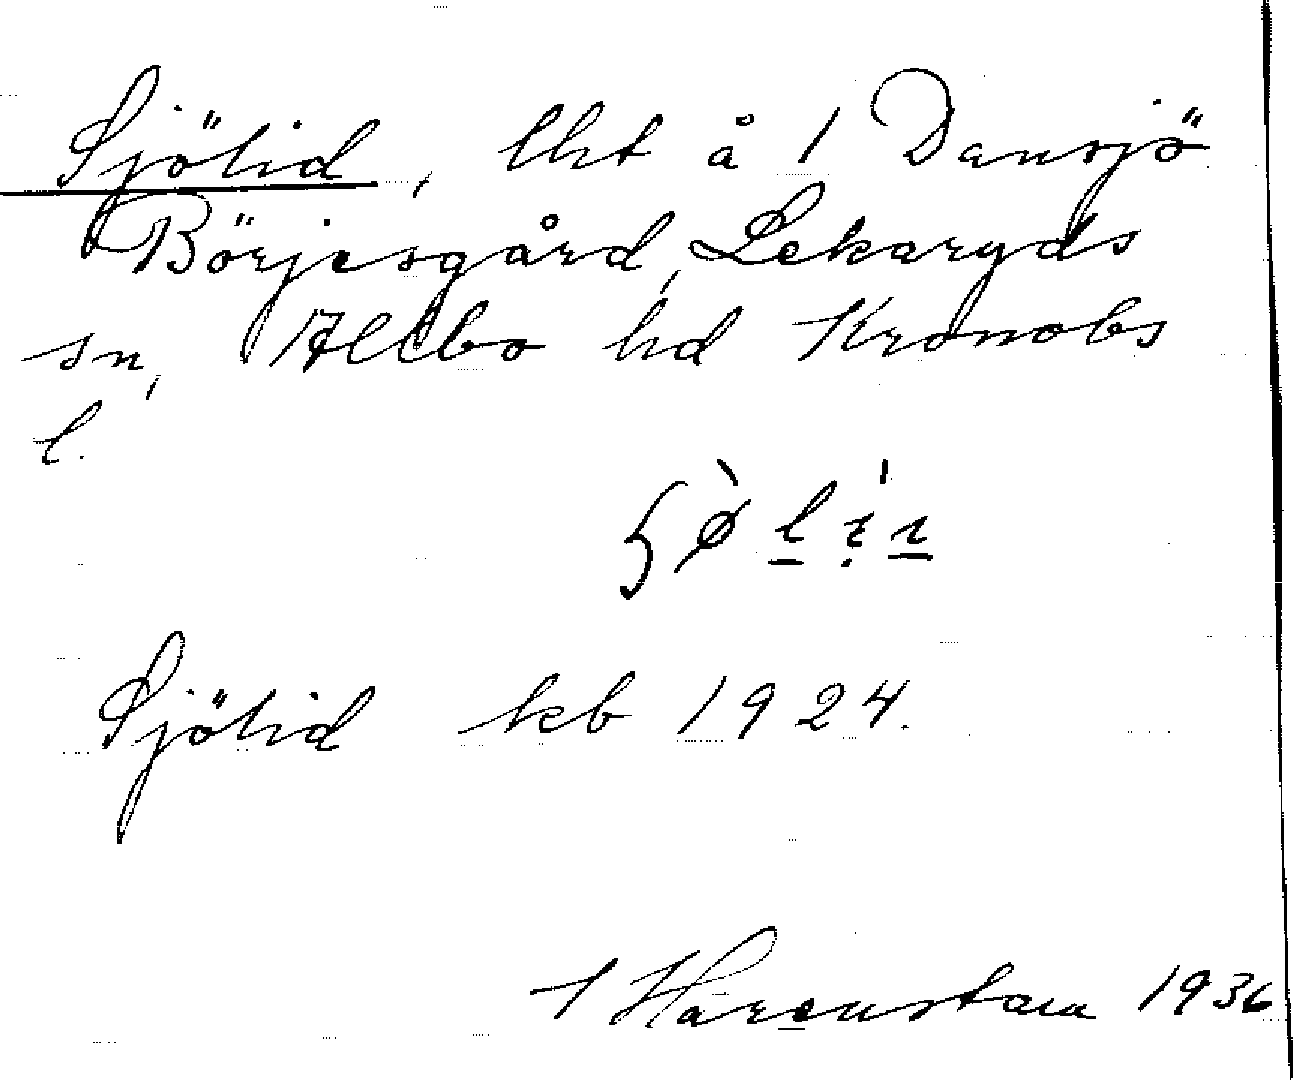 Sjölid, lht å 1 Dansjö
Börjesgård, Lekaryds
sn, Allbo hd Kronobs
l.
Sjölid kb 1924.
Härenstam 1936